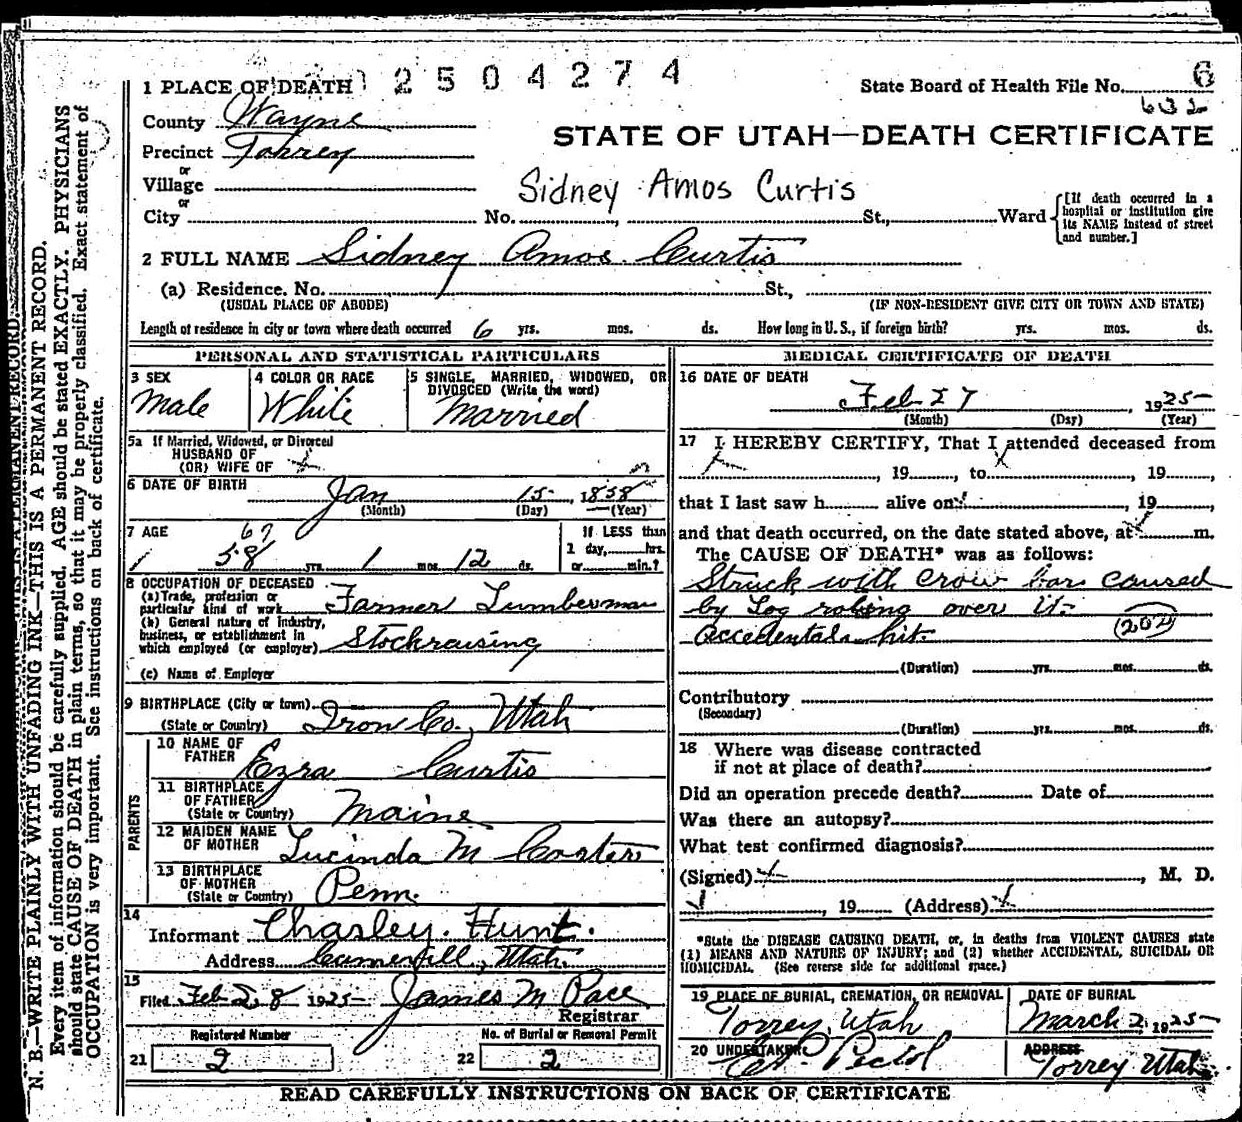 2504274
6
632
1 PLACE OF DEATH
State Board of Health File No.
County Wayne
STATE OF UTAH—DEATH CERTIFICATE
Precinct Torrey
or
Village
Sidney Amos Curtis
or
City No. , St., Ward
[If death occurred in a hospital or institution give its NAME instead of street and number.]
2 FULL NAME Sidney Amos Curtis
(a) Residence. No. St.,
(USUAL PLACE OF ABODE) (IF NON-RESIDENT GIVE CITY OR TOWN AND STATE)
Length of residence in city or town where death occurred 6 yrs. mos. ds. How long in U. S., if foreign birth? yrs. mos. ds.
PERSONAL AND STATISTICAL PARTICULARS
3 SEX
Male
4 COLOR OR RACE
White
5 SINGLE, MARRIED, WIDOWED, OR
DIVORCED (Write the word)
Married
5a If Married, Widowed, or Divorced
HUSBAND OF
(OR) WIFE OF
6 DATE OF BIRTH
Jan 15 1858
(Month) (Day) (Year)
7 AGE
67
58 yrs. 1 mos. 12 ds.
If LESS than
1 day, hrs.
or min.?
8 OCCUPATION OF DECEASED
(a) Trade, profession or
particular kind of work Farmer Lumberman
(b) General nature of industry,
business, or establishment in
which employed (or employer) Stockraising
(c) Name of Employer
9 BIRTHPLACE (City or town)
(State or Country) Iron Co., Utah
PARENTS
10 NAME OF
FATHER Ezra Curtis
11 BIRTHPLACE
OF FATHER
(State or Country) Maine
12 MAIDEN NAME
OF MOTHER Lucinda M
13 BIRTHPLACE
OF MOTHER
(State or Country) Penn.
14
Informant Charley Hunt.
Address Utah
15
Filed Feb 28 1925 James M Pace
Registrar
Registered Number
21 2
No. of Burial or Removal Permit
22 2
MEDICAL CERTIFICATE OF DEATH
16 DATE OF DEATH
Feb 27, 1925
(Month) (Day) (Year)
17 I HEREBY CERTIFY, That I attended deceased from
, 19 , to , 19 ,
that I last saw h alive on , 19 ,
and that death occurred, on the date stated above, at m.
The CAUSE OF DEATH* was as follows:
Struck with crow bar caused
by Log roling over it
accedental hit 202
(Duration) yrs. mos. ds.
Contributory
(Secondary)
(Duration) yrs. mos. ds.
18 Where was disease contracted
if not at place of death?
Did an operation precede death? Date of
Was there an autopsy?
What test confirmed diagnosis?
(Signed) , M. D.
, 19 (Address)
*State the DISEASE CAUSING DEATH, or, in deaths from VIOLENT CAUSES state
(1) MEANS AND NATURE OF INJURY; and (2) whether ACCIDENTAL, SUICIDAL OR
HOMICIDAL. (See reverse side for additional space.)
19 PLACE OF BURIAL, CREMATION, OR REMOVAL
Torrey, Utah
DATE OF BURIAL
March 2, 1925
20 UNDERTAKER
Pectol
ADDRESS
Torrey Utah
READ CAREFULLY INSTRUCTIONS ON BACK OF CERTIFICATE
N. B.—WRITE PLAINLY WITH UNFADING INK—THIS IS A PERMANENT RECORD.
Every item of information should be carefully supplied. AGE should be stated EXACTLY. PHYSICIANS
should state CAUSE OF DEATH in plain terms, so that it may be properly classified. Exact statement of
OCCUPATION is very important. See instructions on back of certificate.